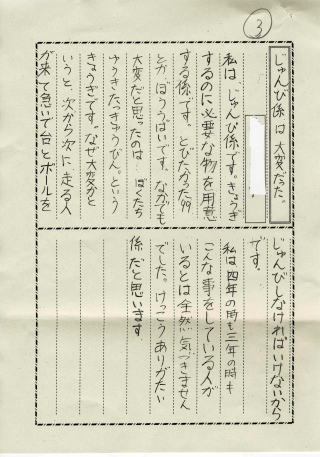 ③
じゅんび係は大変だった。
私は、じゅんび係です。きょうぎ
するのに必要な物を用意
する係です。とびたかった99
とか、ぼうぱいです。なかでも
大変だと思ったのは、ぼくたち
ゆうきたっきゅうびん。という
きょうぎです。なぜ大変かと
いうと、次から次に、走る人
が来て急いで台とボールを
じゅんびしなければいけないから
です。
私は四年の時も三年の時も
こんな事をしている人が
いるとは全然気づきません
でした。けっこうありがたい
係だと思います。